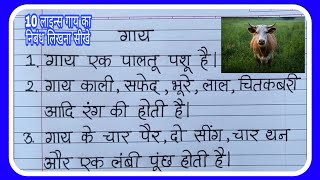 10 लाइन्स गाय का
निबंध लिखना सीखे
गाय
1. गाय एक पालतू पशु है।
2. गाय काली, सफेद, भूरे, लाल, चितकबरी
आदि रंग की होती है।
3. गाय के चार पैर, दो सींग, चार थन
और एक लंबी पूंछ होती है।